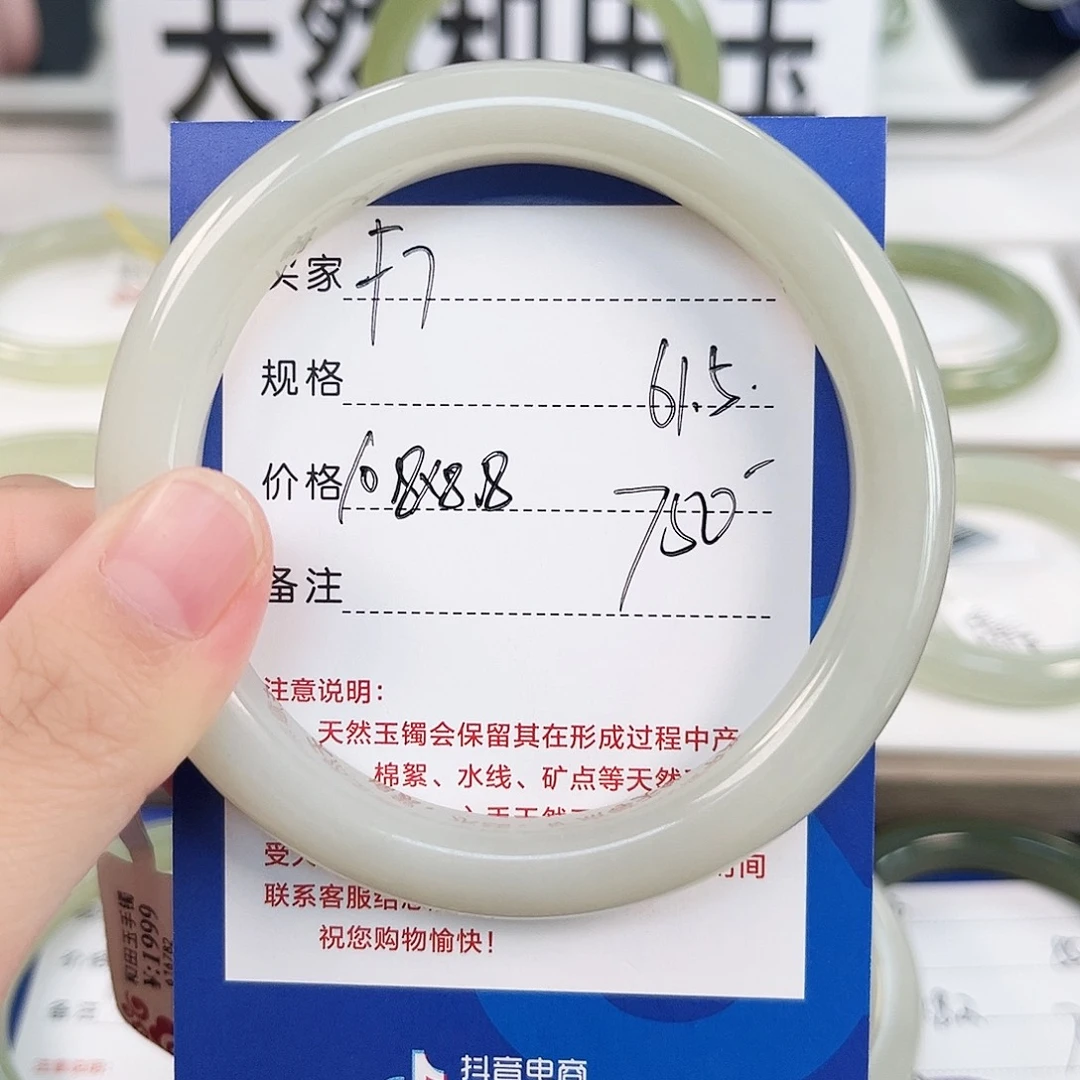 天然和田玉
买家
规格 61.5
价格 10.8x8.8 750
备注
注意说明:
天然玉镯会保留其在形成过程中产
棉絮、水线、矿点等天然
受
时间
联系客服给您
祝您购物愉快!
和田玉手镯
¥:1999
616782
抖音电商